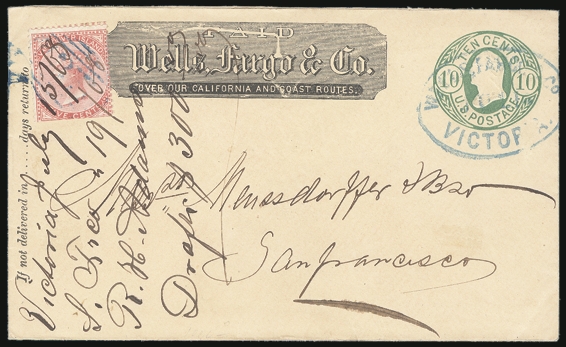 PAID
Wells, Fargo & Co.
OVER OUR CALIFORNIA AND COAST ROUTES.
TEN CENTS
10 10
U.S. POSTAGE
VICTOR
If not delivered in ...... days return to
Victoria July 15/68
S. Fr " 19
R. H. Adams
Draft $300
Meussdorffer & Bro
Sanfrancisco